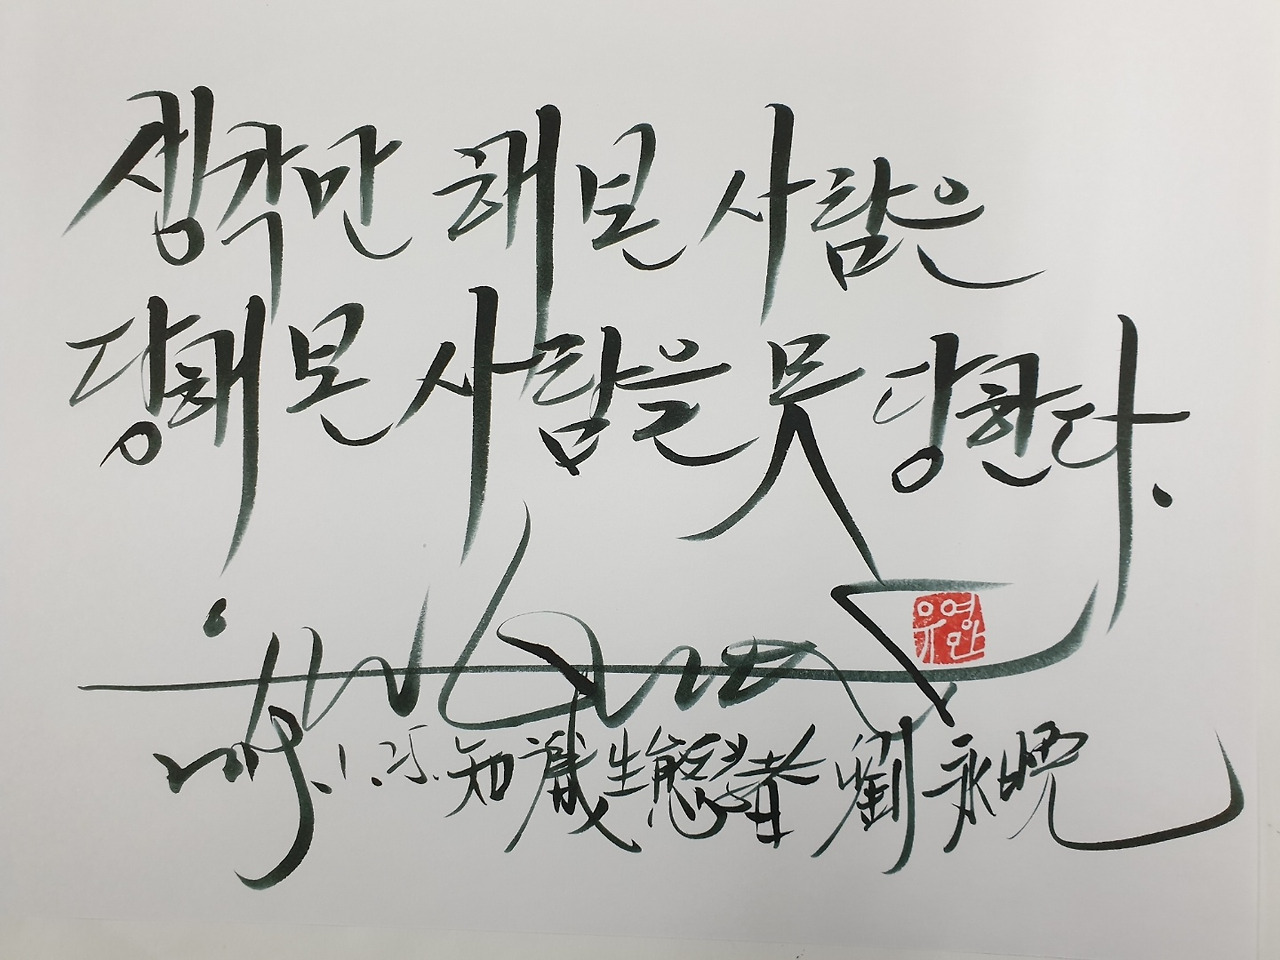 생각만 해본 사람은
당해 본 사람을 못 당한다.
유영만
1.25. 知識生態學者 劉永晚